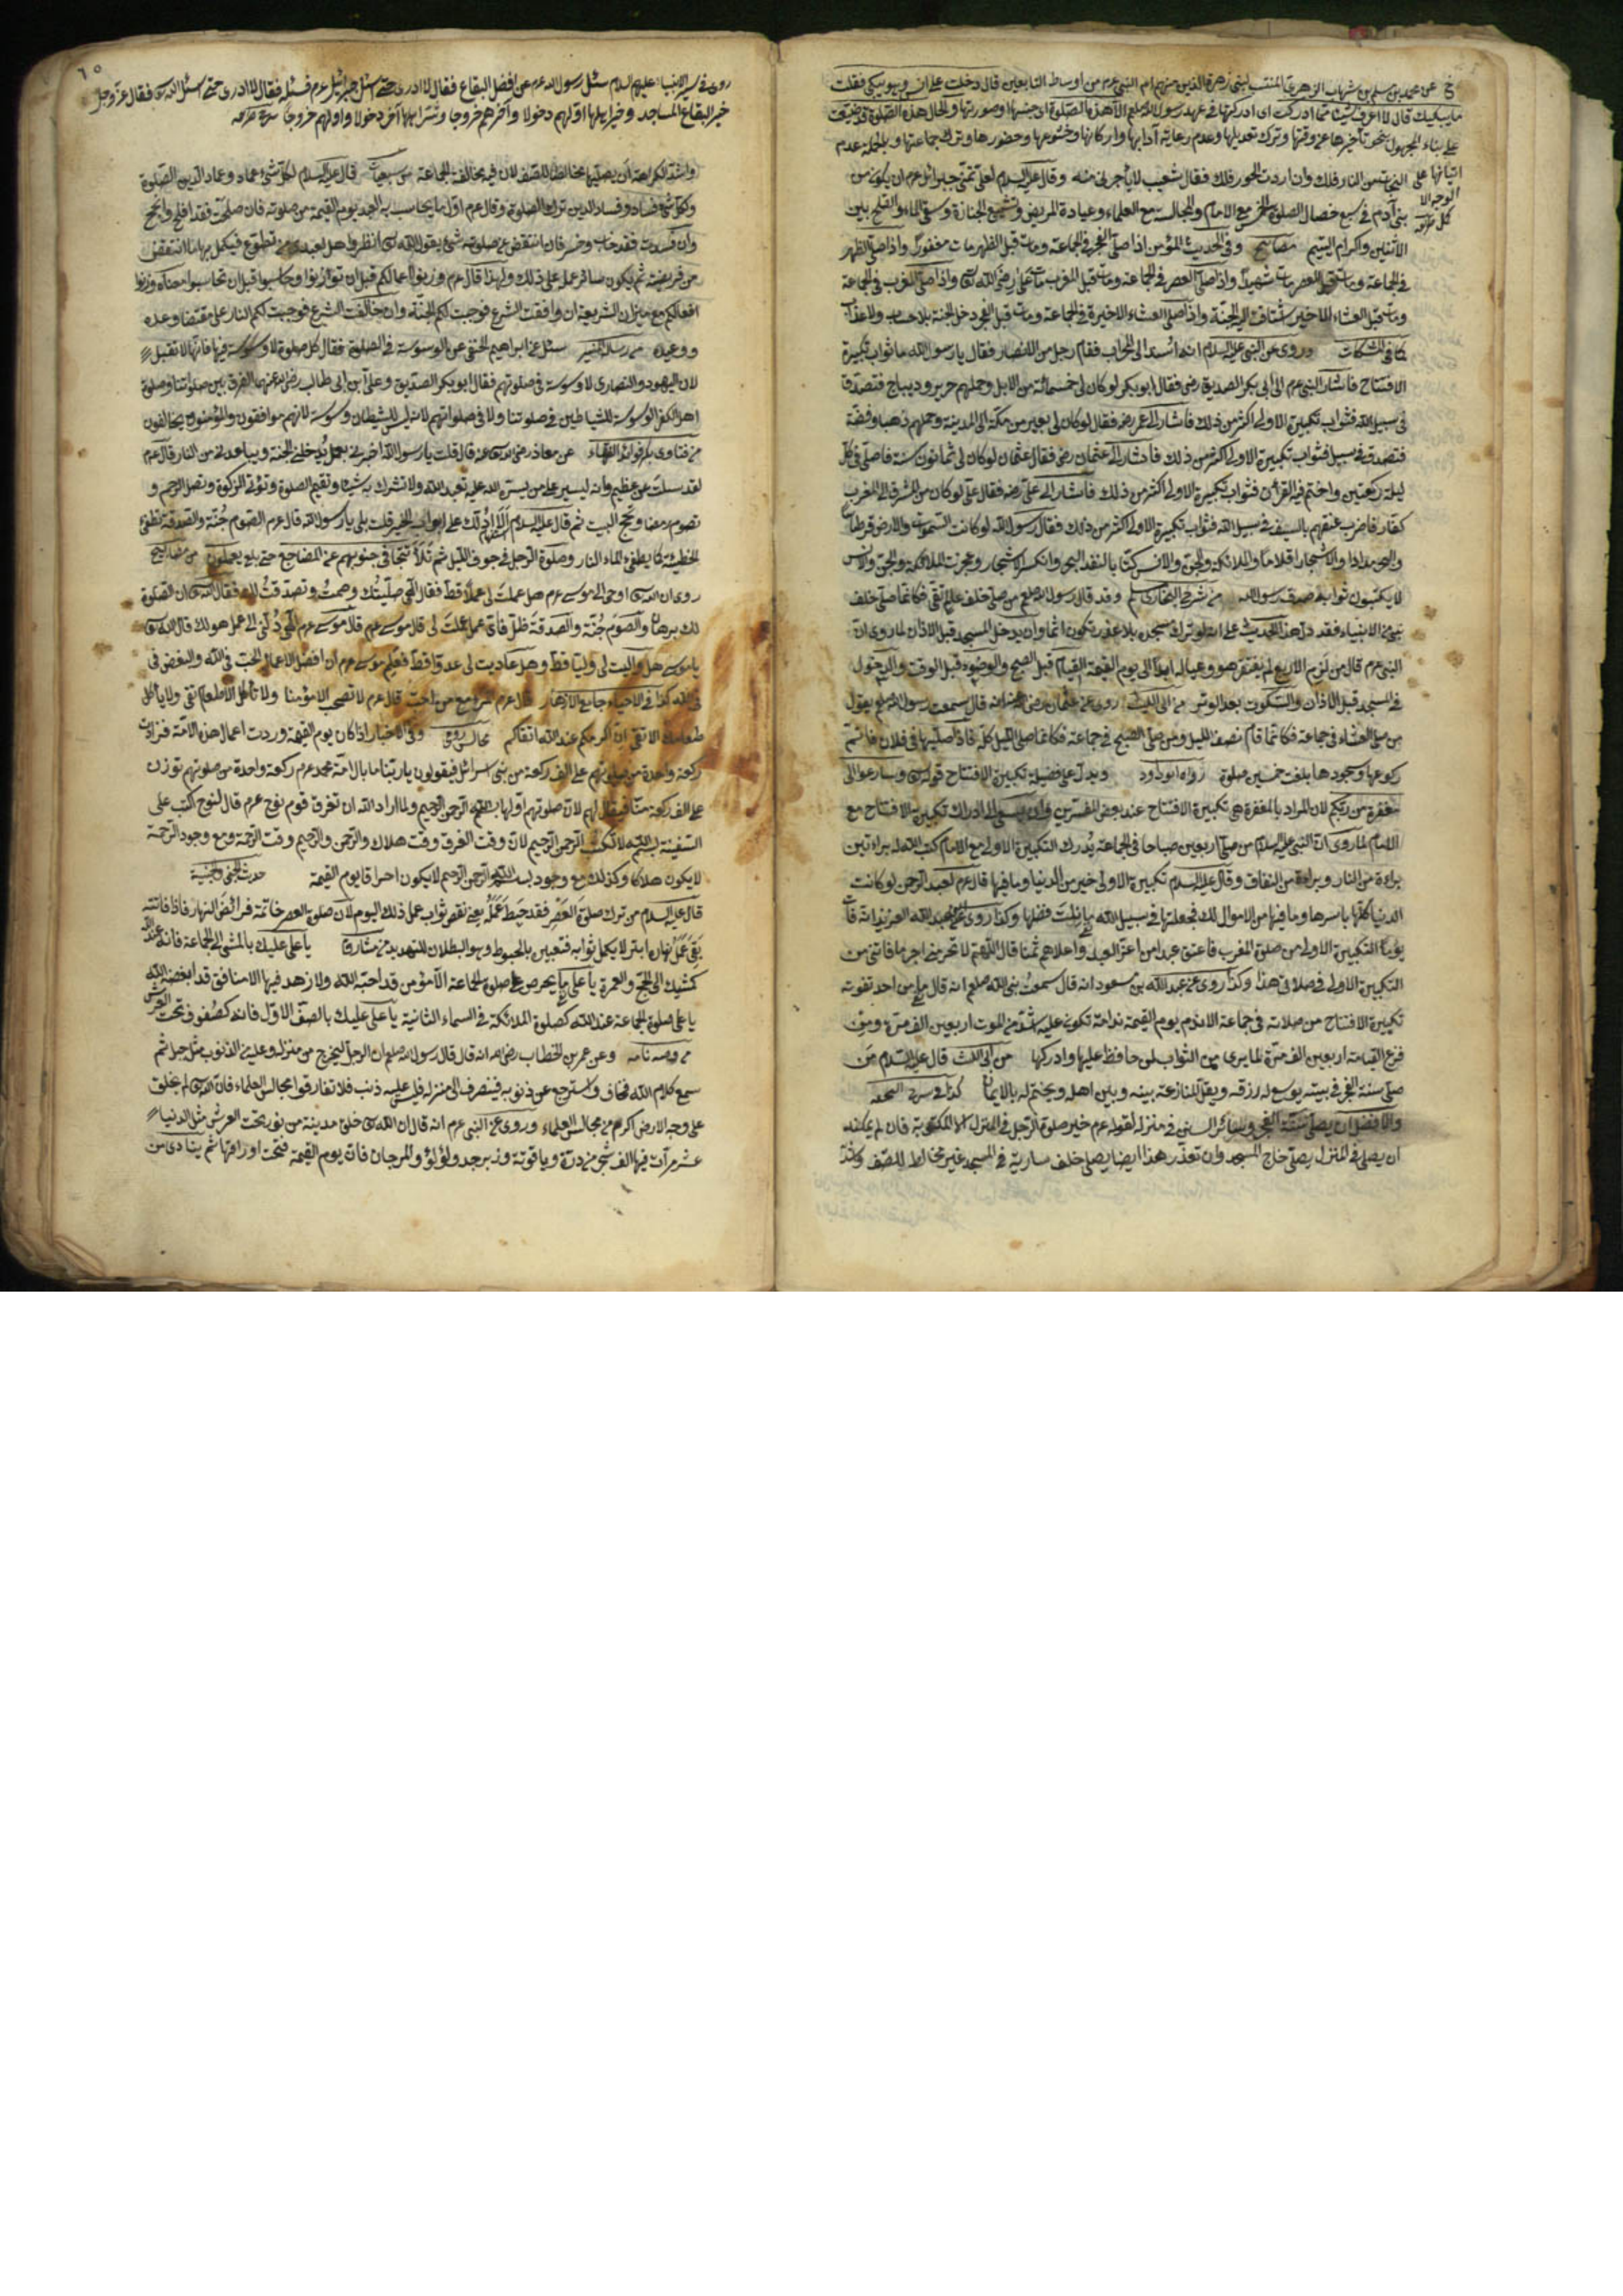 عن محمد بن مسلم بن شهاب الزهري المنتسب لبنى زهرة الذين منهم ام النبى عرم من اوساط التابعين قال دخلت على انس وهو يبكى فقلت
ما يبكيك قال لا اعرف شيئا مما ادركت اى ادركتها فى عهد رسول الله صلعم الا هذه الصلوة اى جنسها او صورتها والحال هذه الصلوة قد ضيعت
على بناء المجهول بنحو تأخيرها عن وقتها وترك تعديلها وعدم رعاية آدابها واركانها وخشوعها وحضورها وترك جماعتها وبالجملة عدم
اتيانها على الوجه الاكمل
فقال شعيب لا يأجرنى منه وقال عليه السلام لعلى تمنى جبرائل عرم ان يكون من
بنى آدم فى سبع خصال الصلوة الخمس مع الامام والمجالسة مع العلماء وعيادة المريض وتشييع الجنازة وسقى الماء والصلح بين
الاثنين واكرام اليتيم مصابيح وفى الحديث المؤمن اذا صلى الفجر فى الجماعة ومات قبل الظهر مات مغفورا واذا صلى الظهر
فى الجماعة ومات قبل العصر مات شهيدا واذا صلى العصر فى الجماعة ومات قبل المغرب مات على رضى الله واذا صلى المغرب فى الجماعة
ومات قبل العشاء الاخير اشتاقت اليه الجنة واذا صلى العشاء الاخيرة فى الجماعة ومات قبل الفجر دخل الجنة بلا حساب ولا عذاب
كما فى المشكات وروى عن النبى عليه السلام انه اسند الى المحراب فقام رجل من الانصار فقال يا رسول الله ما ثواب تكبيرة
الافتتاح فاشار النبى عرم الى ابى بكر الصديق رضى فقال ابو بكر لو كان لى خمسمائة من الابل وحملهم حرير وديباج فتصدقا
فى سبيل الله فثواب تكبيرة الاولى اكثر من ذلك فاشار الى عمر رضه فقال لو كان لى بعير من مكة الى المدينة وحملهم ذهبا وفضة
فتصدق فى سبيل فثواب تكبيرة الاولى اكثر من ذلك فاشار الى عثمان رضى فقال عثمان لو كان لى ثمانون سنة فاصلى فى كل
ليلة ركعتين واختم فيه القرأن فثواب تكبيرة الاولى اكثر من ذلك فاشار الى على رضه فقال على لو كان من المشرق الى المغرب
كفار فاضرب عنقهم بالسيف فى سبيل الله فثواب تكبيرة الاولى اكثر من ذلك فقال رسول الله لو كانت السموات والارض قرطاسا
والبحر مدادا والاشجار اقلاما والملائكة والجن والانس كتابا لنفد البحر وانكسر الاشجار وعجزت الملائكة والجن والانس
لا يكتبون ثوابه صدق رسول الله من شرح البخارى وقد قال رسول الله صلعم من صلى خلف عالم تقى فكانما صلى خلف
نبى من الانبياء فقد دل هذا الحديث على انه لو ترك مسجد بلا عذر تكون اثما وان يدخل المسجد قبل الاذان لما روى ان
النبى عرم قال من لزم الاربع لم يفتقر هو وعياله ابدا الى يوم القيمة القيام قبل الصبح والوضوء قبل الوقت والدخول
فى المسجد قبل الاذان والسكوت بعد الوتر من ابى الليث روى عن عثمان رضى انه قال سمعت رسول الله صلعم يقول
من صلى العشاء فى جماعة فكانما قام نصف الليل ومن صلى الصبح فى جماعة فكانما صلى الليل كله
ركوعها وسجودها بلغت خمسين صلوة رواه ابو داود ويدل على فضيلة تكبيرة الافتتاح قوله وسارعوا الى
مغفرة من ربكم لان المراد بالمغفرة هى تكبيرة الافتتاح عند بعض المفسرين وادراك تكبيرة الافتتاح مع
الامام لما روى ان النبى عليه السلام من صلى اربعين صباحا فى الجماعة يدرك التكبيرة الاولى مع الامام كتب الله له براءتين
براءة من النار وبراءة من النفاق وقال عليه السلام تكبيرة الاولى خير من الدنيا وما فيها قال عرم لعبد الرحمن لو كانت
الدنيا كلها باسرها وما فيها من الاموال لك فجعلتها فى سبيل الله ما نلت فضلها وكذا روى عن عبد الله
يوما التكبيرة الاولى من صلوة المغرب فاعتق عبدا من اعز العبيد واعلاهم ثمنا قال اللهم لا تحرمنى اجر ما فاتنى من
التكبيرة الاولى فى صلاتى هذا وكذا روى عن عبد الله بن مسعود انه قال سمعت نبى الله صلعم انه قال ما من احد تفوته
تكبيرة الافتتاح من صلاته فى جماعة الا ندم يوم القيمة ندامة تكون عليه اشد من الموت اربعين الف مرة ومن
فزع القيامة اربعين الف مرة لما يرى من الثواب لمن حافظ عليها وادركها من ابى الليث قال عليه السلام من
صلى سنة الفجر فى بيته يوسع له رزقه ويقل المنازعة بينه وبين اهله ويختم له بالايمان كذا فى
والافضل ان يصلى سنة الفجر وسائر السنن فى منزله لقوله عرم خير صلوة الرجل فى المنزل الا المكتوبة فان لم يمكنه
ان يصلى فى المنزل يصلى خارج المسجد وان تعذر هذا ايضا يصلى خلف سارية فى المسجد غير مخالط للصف وكذا
روى فى سير الانبياء عليهم السلام سئل رسول الله عرم عن افضل البقاع فقال لا ادرى حتى اسئل جبرائيل عرم فسئله فقال لا ادرى حتى اسئل الله فقال عز وجل
خير البقاع المساجد وخير اهلها اولهم دخولا وآخرهم خروجا وشر اهلها آخر دخولا واولهم خروجا
واشد الكراهة ان يصليها مخالطا للصف لان فيه مخالفة الجماعة قال عليه السلام لكل شىء عماد وعماد الدين الصلوة
ولكل شىء فساد وفساد الدين ترك الصلوة وقال عرم اول ما يحاسب به العبد يوم القيمة من صلوته فان صلحت فقد افلح وانجح
وان فسدت فقد خاب وخسر فان انتقص من صلوته شئ يقول الله انظروا هل لعبدى من تطوع فيكمل بها ما انتقص
من فريضته ثم يكون سائر عمله على ذلك ولهذا قال عرم وزنوا اعمالكم قبل ان توازنوا وحاسبوا قبل ان تحاسبوا معناه وزنوا
افعالكم مع ميزان الشريعة ان وافقت الشرع فوجبت لكم الجنة وان خالفت الشرع فوجبت لكم النار على مقتضا وعده
ووعيده من رسالة سئل عن ابراهيم النخعى عن الوسوسة فى الصلوة فقال كل صلوة لا وسوسة فيها فانها لا تقبل
لان اليهود والنصارى لا وسوسة فى صلوتهم فقال ابو بكر الصديق وعلى ابن ابى طالب رضى الله عنهما الفرق بين صلوتنا وصلوة
اهل الكفر الوسوسة للشياطين فى صلوتنا ولا فى صلواتهم لانه ليس للشيطان وسوسة لانهم موافقون والمؤمنون يخالفون
من فتاوى عن معاذ رضى الله عنه قال قلت يا رسول الله اخبرنى بعمل يدخلنى الجنة ويباعدنى من النار قال عرم
لقد سئلت عن عظيم وانه ليسير على من يسره الله عليه تعبد الله ولا تشرك به شيئا وتقيم الصلوة وتؤتى الزكوة وتصل الرحم و
تصوم رمضا وتحج البيت ثم قال عليه السلام الا ادلك على ابواب الخير قلت بلى يا رسول الله قال عرم الصوم جنة والصدقة تطفئ
الخطيئة كما يطفئ الماء النار وصلوة الرجل فى جوف الليل ثم تلا تتجافى جنوبهم عن المضاجع حتى بلغ يعملون من مصابيح
روى ان الله اوحى الى موسى عرم هل عملت لى عملا قط فقال الهى صليت لك وصمت وتصدقت لك فقال الله ان الصلوة
لك برهان والصوم جنة والصدقة ظل فاى عمل عملت لى قال موسى عرم الهى دلنى الى عمل هو لك قال الله
يا موسى هل واليت لى وليا قط وهل عاديت لى عدوا قط فعلم موسى عرم ان افضل الاعمال الحب فى الله والبغض فى
الله كذا فى الاحياء جامع الازهار قال عرم المرء مع من احب قال عرم لا تصحب الا مؤمنا ولا تأكل الا طعام تقى ولا يأكل
طعامك الا تقى ان اكرمكم عند الله اتقاكم مجالس رومى وفى الاخبار اذا كان يوم القيمة وردت اعمال هذه الامة فزادت
ركعة واحدة من صلوتهم على الف ركعة من بنى اسرائل فيقولون يا ربنا ما بال امة محمد عرم ركعة واحدة من صلوتهم توزن
على الف ركعة منا فيقال لهم لان صلوتهم اولها بسم الله الرحمن الرحيم ولما اراد الله ان تغرق قوم نوح عرم قال لنوح اكتب على
السفينة بسم الله لا تكتب الرحمن الرحيم لان وقت الغرق وقت هلاك والرحمن والرحيم وقت الرحمة ومع وجود الرحمة
لا يكون هلاكا وكذلك مع وجود بسم الله الرحمن الرحيم لا يكون احراقا يوم القيمة
قال عليه السلام من ترك صلوة العصر فقد حبط عمله يعنى نقص ثواب عمل ذلك اليوم لان صلوة العصر خاتمة فرائض النهار فاذا فاتته
بقى عمل نهاره ابتر لا يكمل ثوابه فتعبيره بالحبوط وهو البطلان للتهديد من مشارق يا على عليك بالمشى الى الجماعة فانه عند الله
كمشيك الى الحج والعمرة يا على ما يحرص على صلوة الجماعة الا مؤمن قد احبه الله ولا زهد فيها الا منافق قد ابغضه الله
يا على صلوة الجماعة عند الله كصلوة الملائكة فى السماء الثانية يا على عليك بالصف الاول فانه كصفوف تحت العرش
من وصيه نامه وعن عمر بن الخطاب رضى الله انه قال قال رسول الله صلعم ان الرجل ليخرج من منزله وعليه من الذنوب مثل جبل ثم
سمع كلام الله فخاف واسترجع عن ذنوبه فينصرف الى منزله فليس عليه ذنب فلا تفارقوا مجالس العلماء فان الله لم يخلق
على وجه الارض اكرم من مجالس العلماء وروى عن النبى عرم انه قال ان الله خلق مدينة من نور تحت العرش مثل الدنيا
عشر مرات فيها الف شجر من درة وياقوتة وزبرجد ولؤلؤ والمرجان فاذا كان يوم القيمة فتحت اوراقها ثم ينادى من